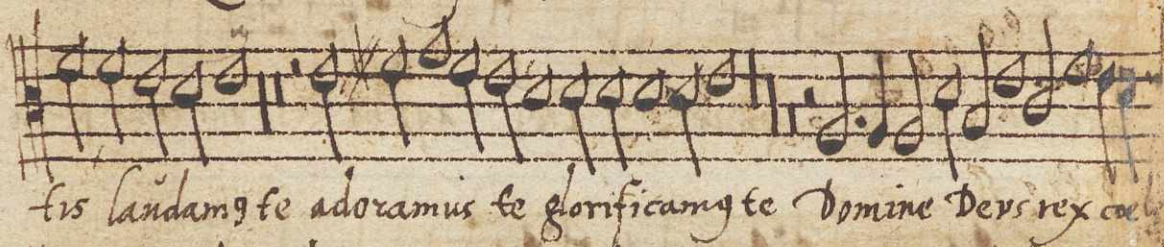 tis laudamꝰ te adoramus te glorificamꝰ te Domine Deus rex coele